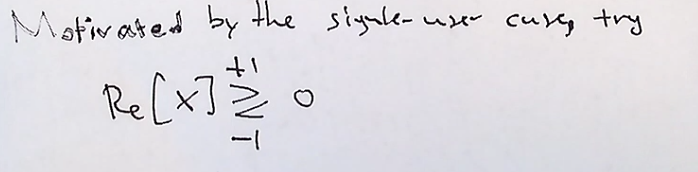 Motivated by the single-user case, try
+1
Re[X] ≷ 0
-1